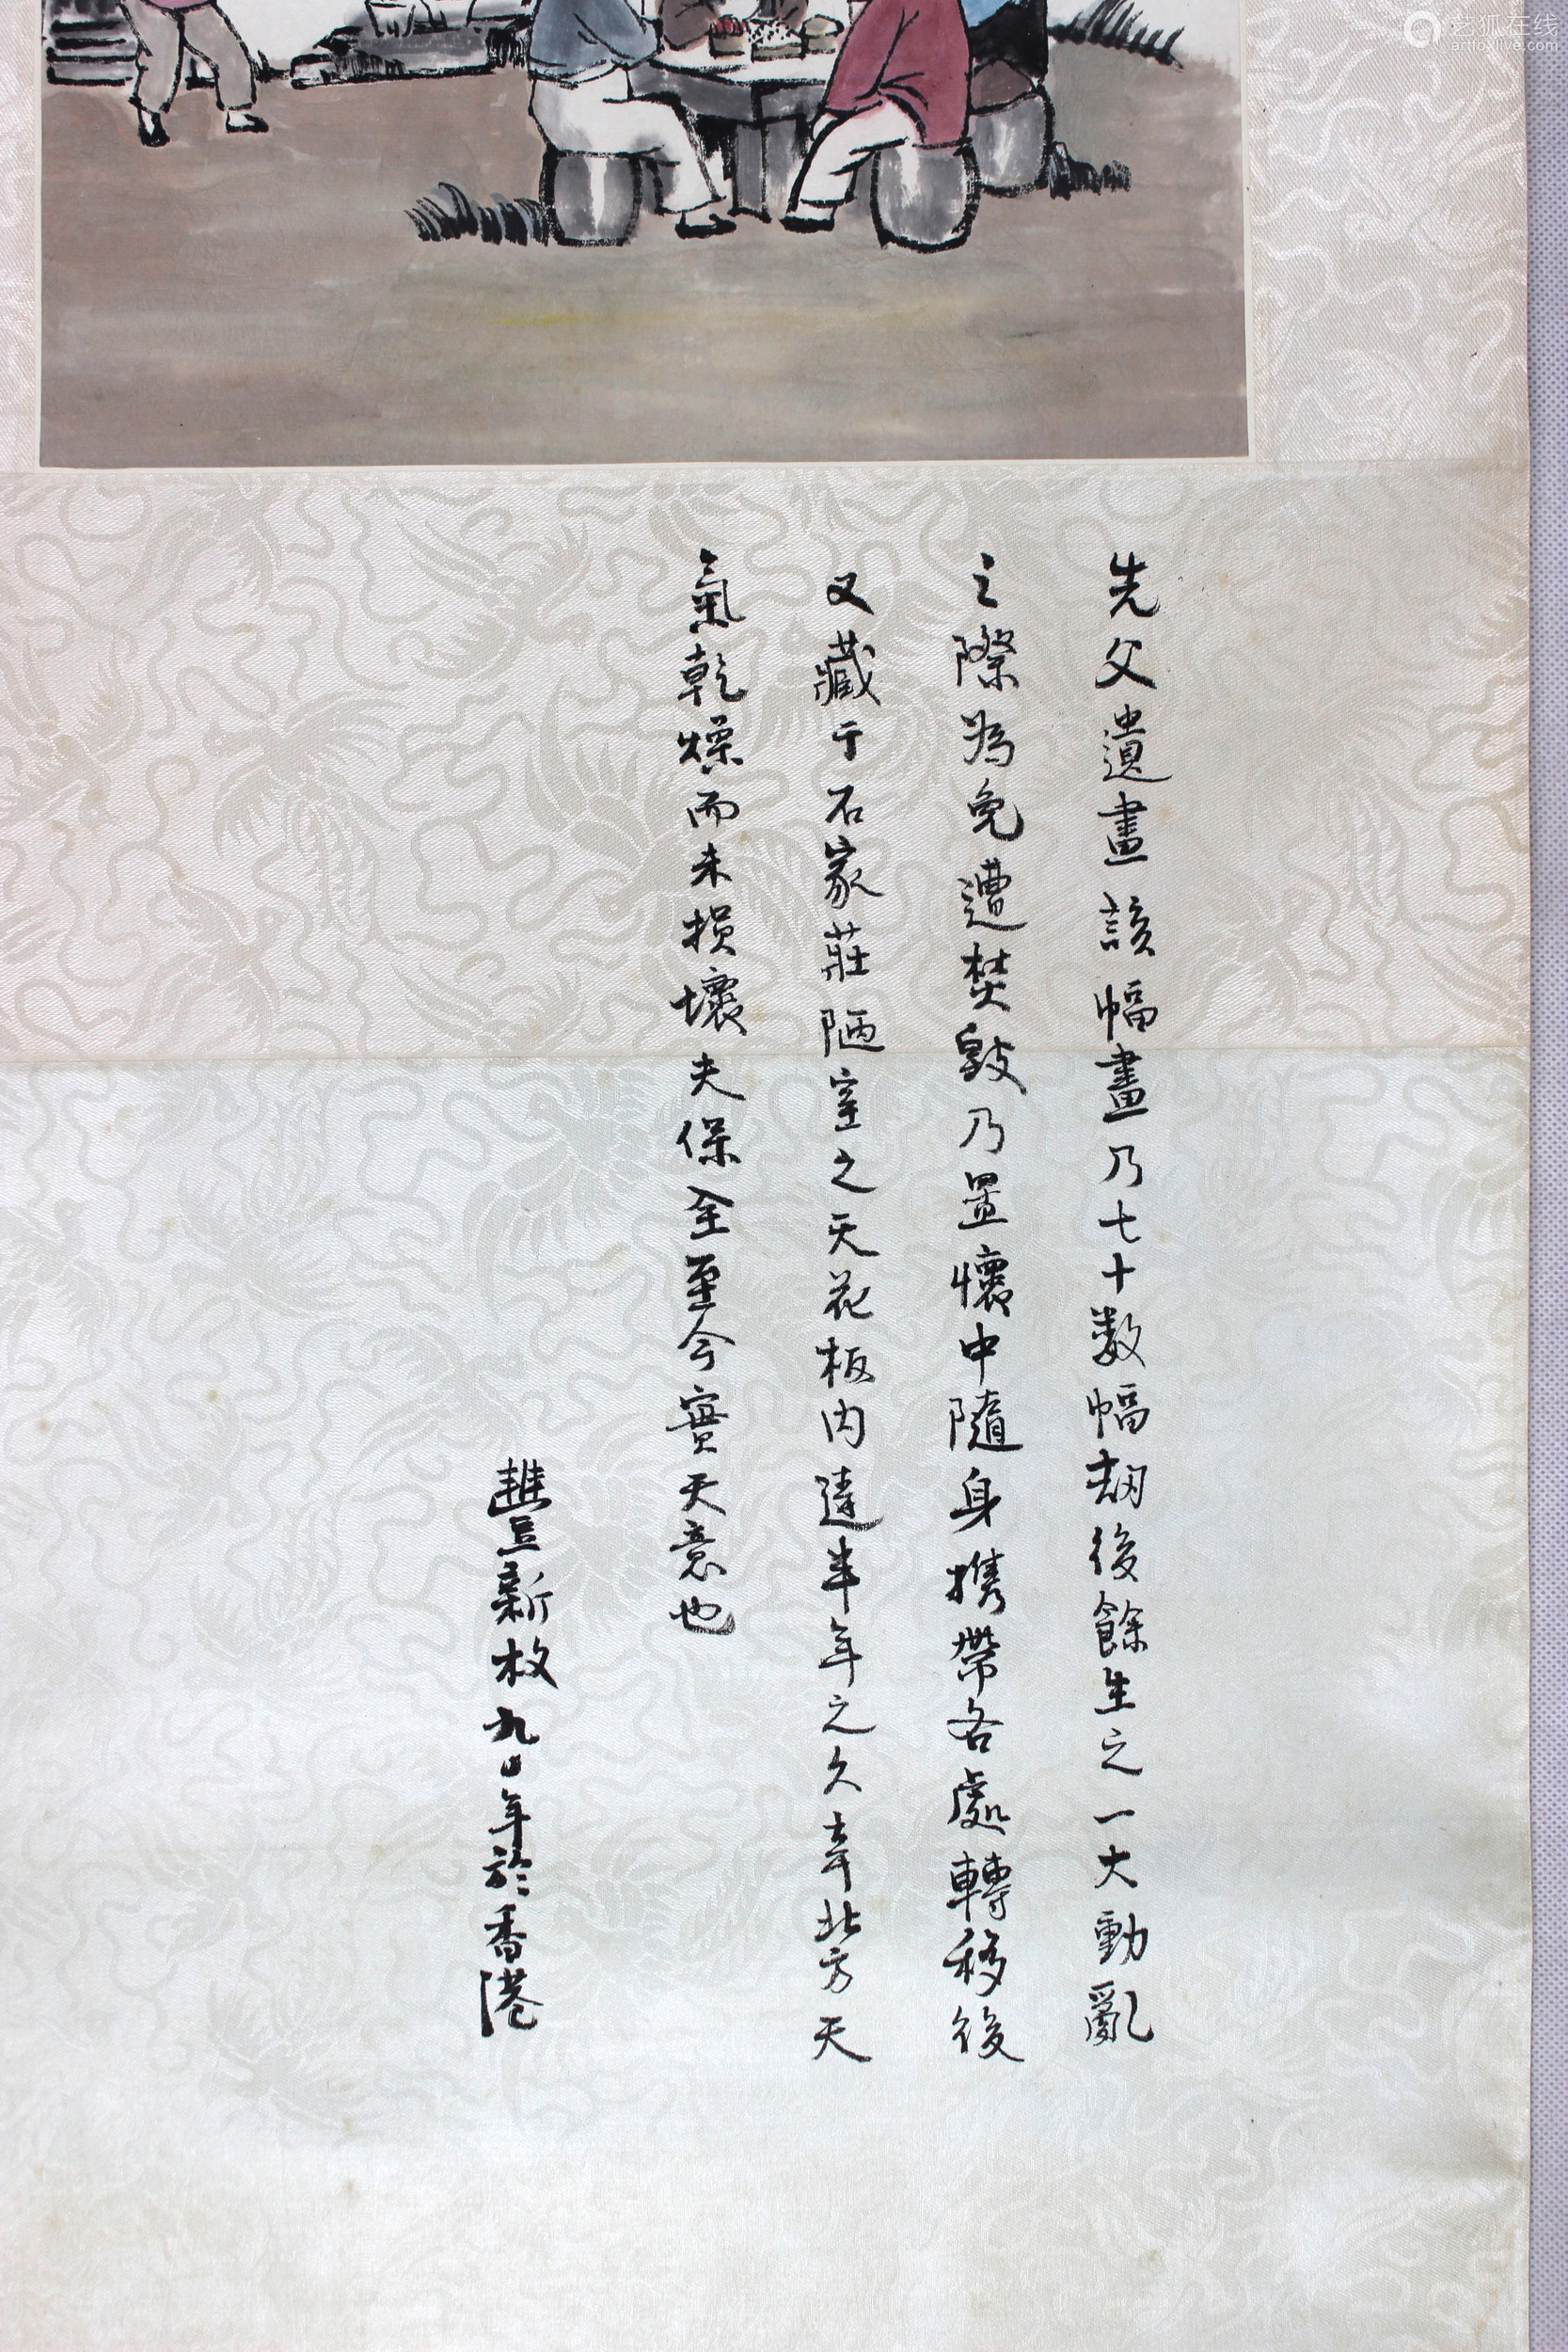 艺狐在线
artfoxlive.com
先父遺畫該幅畫乃七十数幅刧後餘生之一大動亂
之際為免遭焚毀乃置懷中隨身携帶各處轉移後
又藏于石家莊陋室之天花板内達半年之久幸北方天
氣乾燥而未損壞夫保全至今實天意也
豐新枚九〇年於香港